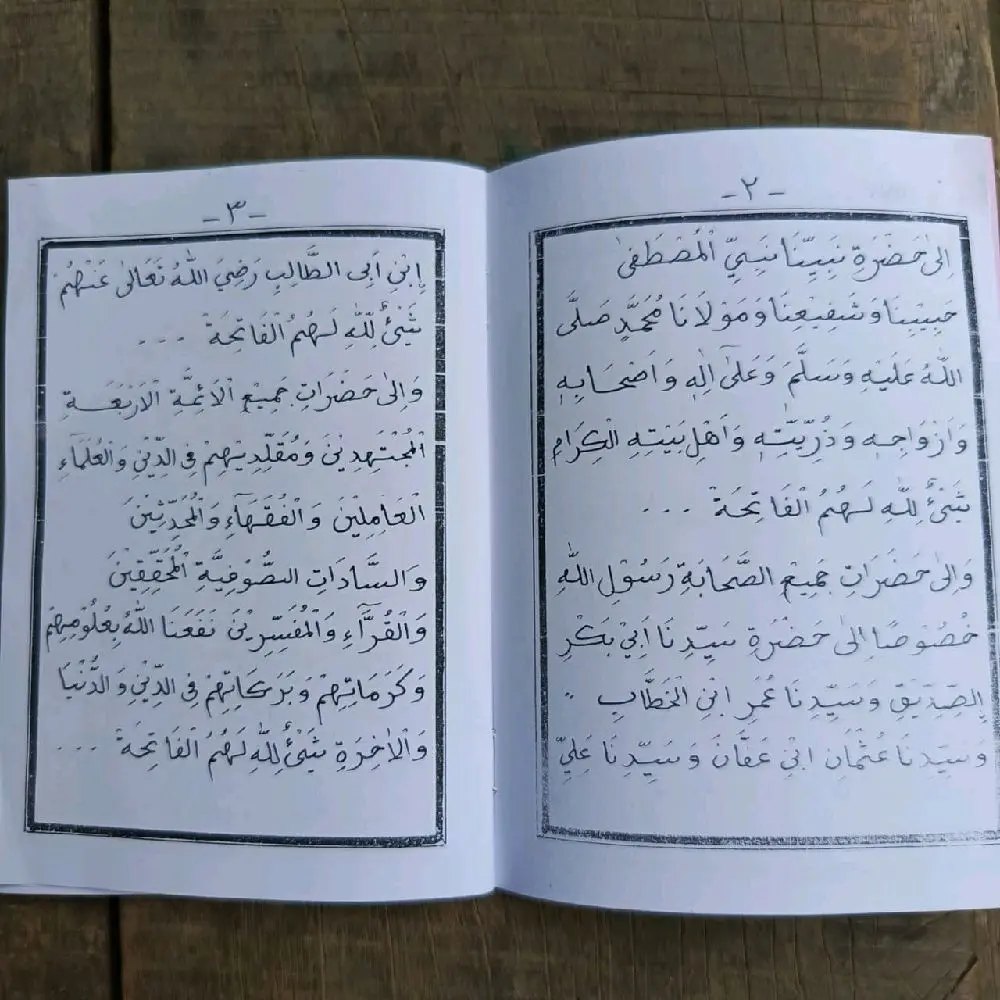 -٢-
اِلىٰ حَضْرَةِ نَبِيِّنَا نَبِيِّ الْمُصْطَفىٰ
حَبِيْبِنَا وَشَفِيْعِنَا وَمَوْلَانَا مُحَمَّدٍ صَلَّى
اللّٰهُ عَلَيْهِ وَسَلَّمَ وَعَلىٰ اٰلِهٖ وَاَصْحَابِهٖ
وَاَزْوَاجِهٖ وَذُرِّيَّتِهٖ وَاَهْلِ بَيْتِهِ الْكِرَامِ
شَىْءٌ لِلّٰهِ لَهُمُ الْفَاتِحَةْ ...
وَاِلىٰ حَضَرَاتِ جَمِيْعِ الصَّحَابَةِ رَسُوْلِ اللّٰهِ
خُصُوْصًا اِلىٰ حَضْرَةِ سَيِّدِنَا اَبِيْ بَكْرِ
الصِّدِّيْقِ وَسَيِّدِنَا عُمَرِ ابْنِ الْخَطَّابِ
وَسَيِّدِنَا عُثْمَانِ ابْنِ عَفَّانَ وَسَيِّدِنَا عَلِيِّ
-٣-
اِبْنِ اَبِى الطَّالِبِ رَضِيَ اللّٰهُ تَعَالىٰ عَنْهُمْ
شَىْءٌ لِلّٰهِ لَهُمُ الْفَاتِحَةْ ...
وَاِلىٰ حَضْرَاتِ جَمِيْعِ الْاَئِمَّةِ الْاَرْبَعَةِ
الْمُجْتَهِدِيْنَ وَمُقَلِّدِيْهِمْ فِى الدِّيْنِ وَالْعُلَمَآءِ
الْعَامِلِيْنَ وَالْفُقَهَآءِ وَالْمُحَدِّثِيْنَ
وَالسَّادَاتِ الصُّوْفِيَّةِ الْمُحَقِّقِيْنَ
وَالْقُرَّآءِ وَالْمُفَسِّرِيْنَ نَفَعَنَا اللّٰهُ بِعُلُوْمِهِمْ
وَكَرَمَاتِهِمْ وَبَرَكَاتِهِمْ فِى الدِّيْنِ وَالدُّنْيَا
وَالْاٰخِرَةِ شَىْءٌ لِلّٰهِ لَهُمُ الْفَاتِحَةْ ...